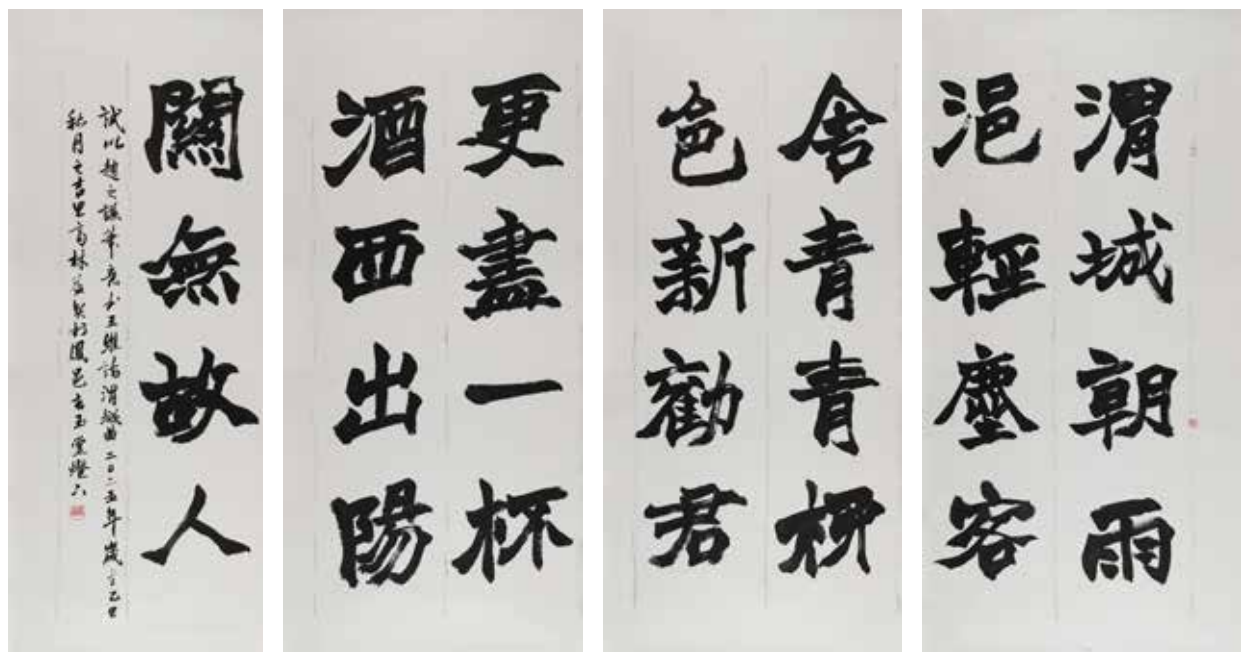 渭城朝雨
浥輕塵客
舍青青柳
色新勸君
更盡一杯
酒西出陽
關無故人
試以趙之謙筆意书王維詩渭城曲二〇二五年歲立乙巳
秋月之吉里高林 於鳳邑玄玉堂燈下